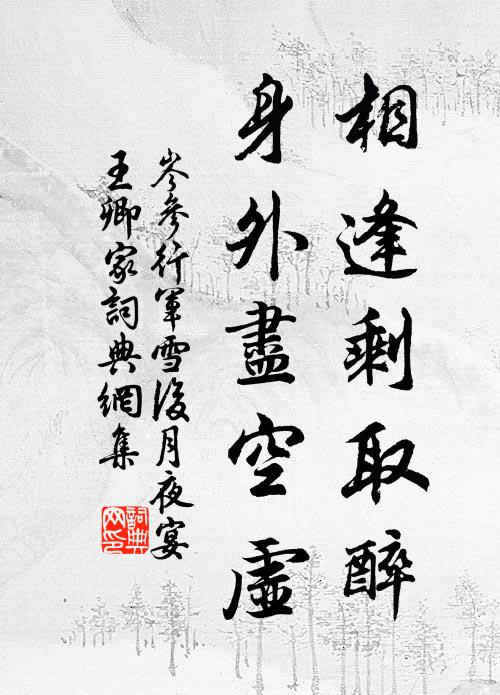 相逢剩取醉
身外盡空虛
岑參行軍雪後月夜宴
王卿家詞典網集
詞典
网印